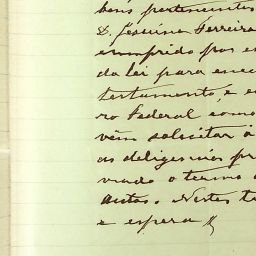 bens pertencentes
D. Jesuina Ferreira
cumprido por
da lei para
testamento, e
ro Federal como
vêm solicitar
as deligencias
viado o termo
autos. Nestes
e espera